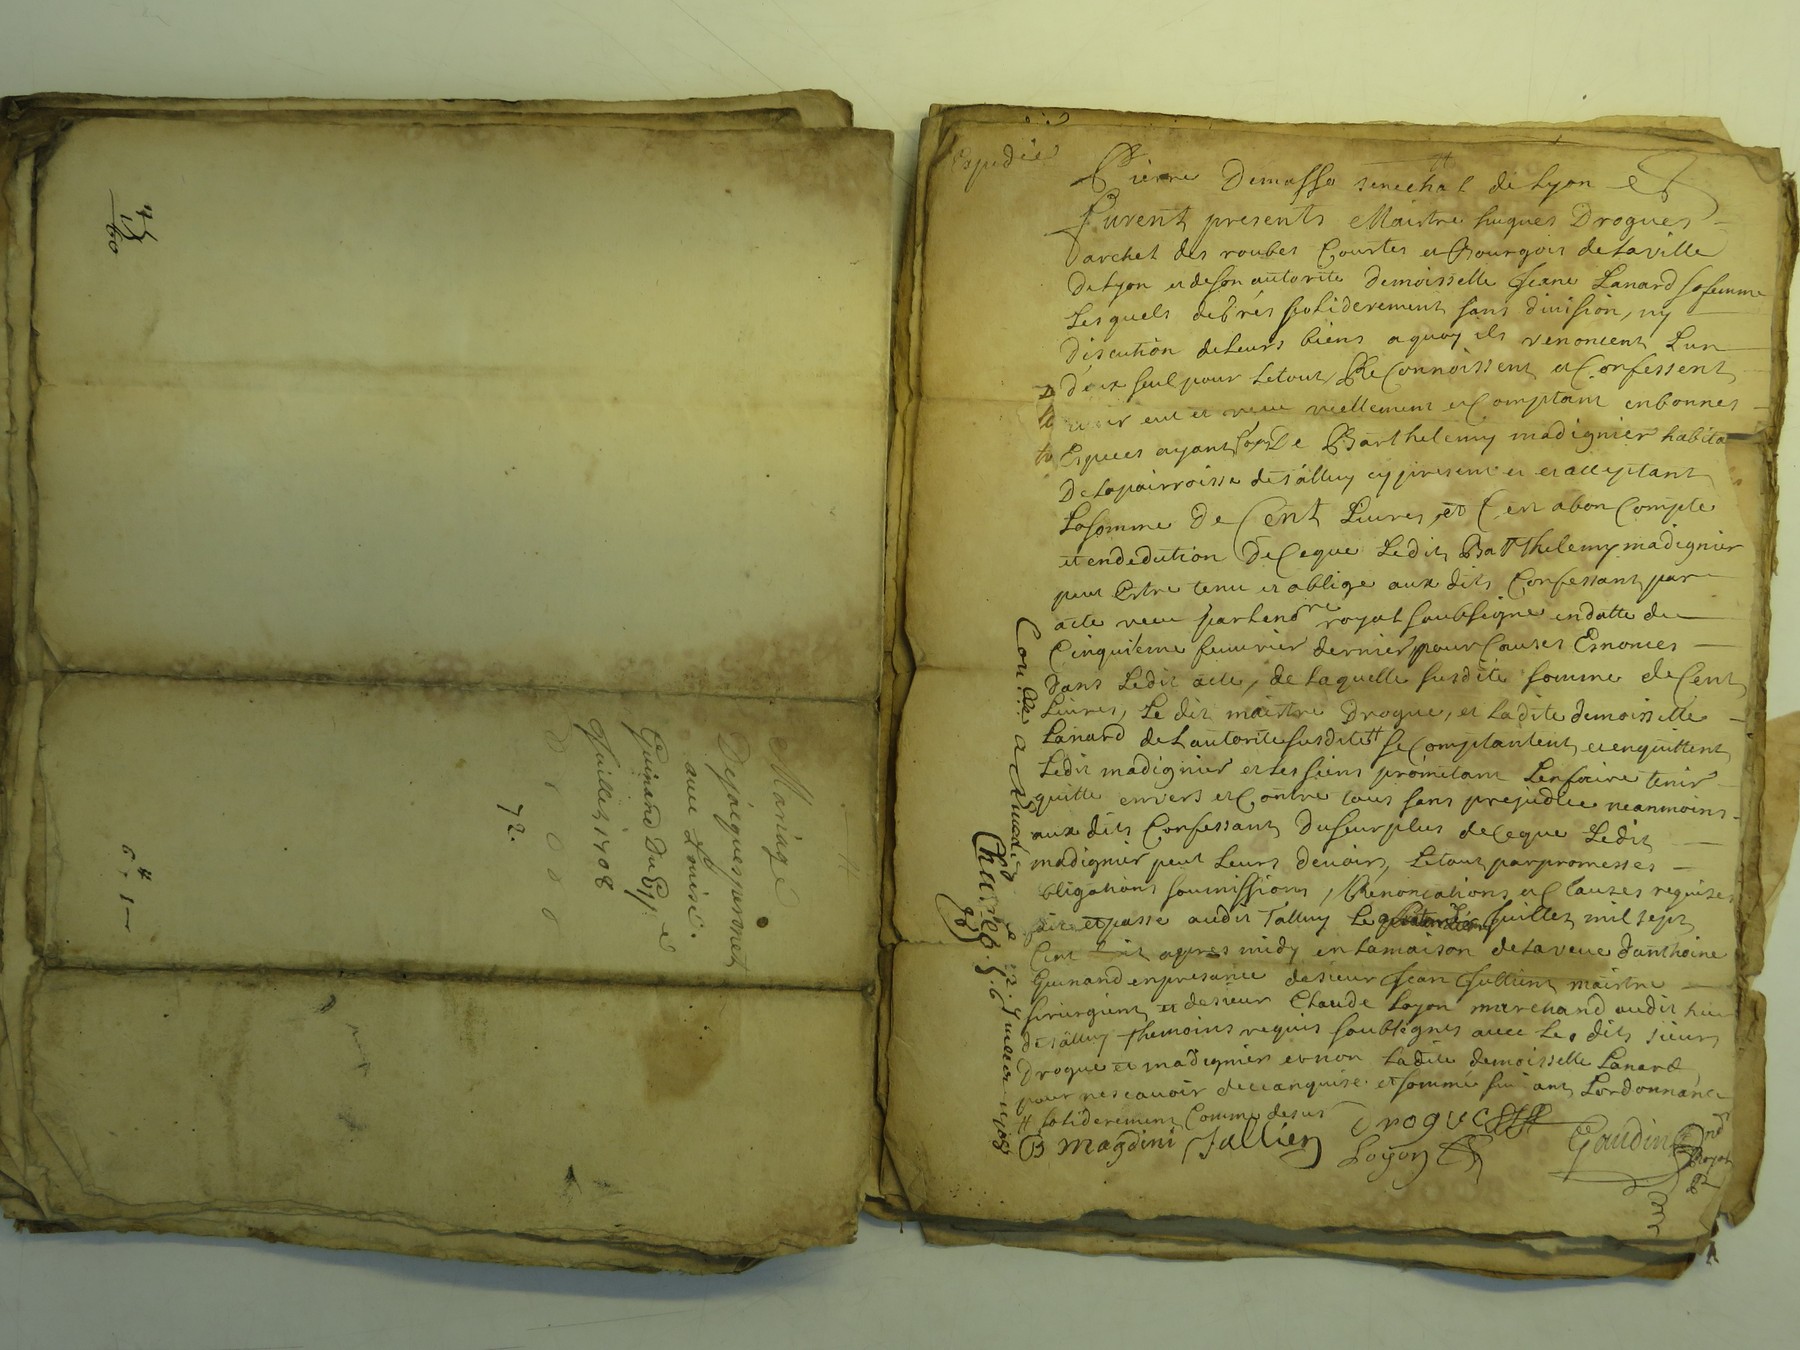 Mariage
De jaeques perenet
avec Louise
Guinand Du 6e
Juillet 1708
72.
Expedié
Pierre Demasso senechal de Lyon et
furent presents Maistre hugues Drogues
archet des roubes Courtes et Bourgois de la ville
de Lyon et de son autorite Demoisselle Jeane Lanard sa femme
Lesquels de grés solliderement sans division, ny
discution de Leurs biens a quoy ils renoncent Lun
d'eux seul pour Letout, Reconnoissent et Confessent
avoir eut et receu reellement et Comptant en bonnes
Especes ayant De Barthelemy madignier habita
De la pairroisse de talluy cy present et et acceptant
La somme De Cent Livres, et C'est a bon Compte
et en dedution De Ceque Ledit Barthelemy madignier
peut Estre tenu et oblige aux dits Confessant par
acte receu par Le nore royal soubsigne en datte du
Cinquieme feuvrier dernier pour Causes Enonces
dans Ledit acte, de laquelle susdite somme de Cent
Livres, Le dit maistre Drogue, et ladite demoisselle
Lanard de Lautorite susdite se Comptantent et en quittent
Ledit madignier et Les siens prometant Len faire tenir
quitte envers et Contre tous sans prejudice neanmoins
aux dits Confessant du surplus de Ceque Ledit
madignier peut Leurs devoir, Letout par promesses
obligations soumissions, Renonciations et Clauses requises
fait et passe audit Talluy Le Juillet mil sept
Cent huit apres midy en la maison de la veuve d'anthoine
Guinand en presance de sieur Jean Jullient maistre
sirurgient et de sieur Claude Loyon marchand audit lieu
de talluy themoins requis soubsignes avec Les dits sieurs
Drogue et madignier et non Ladite demoisselle Lanard
pour ne scavoir de ce enquise et sommé suivant Lordonnance
solliderement Comme desus
Drogue
B madinié Jullien
Loyon
Gaudin nore Royal
Con lle a
Chars
1708